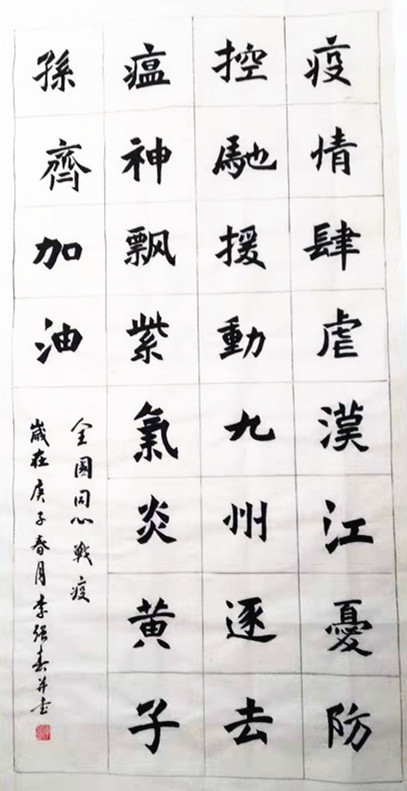 疫情肆虐漠江憂防
控馳援動九州逐去
瘟神飄紫氣炎黄子
孫齊加油
全國同心戰疫
歲在庚子春月李強春并書